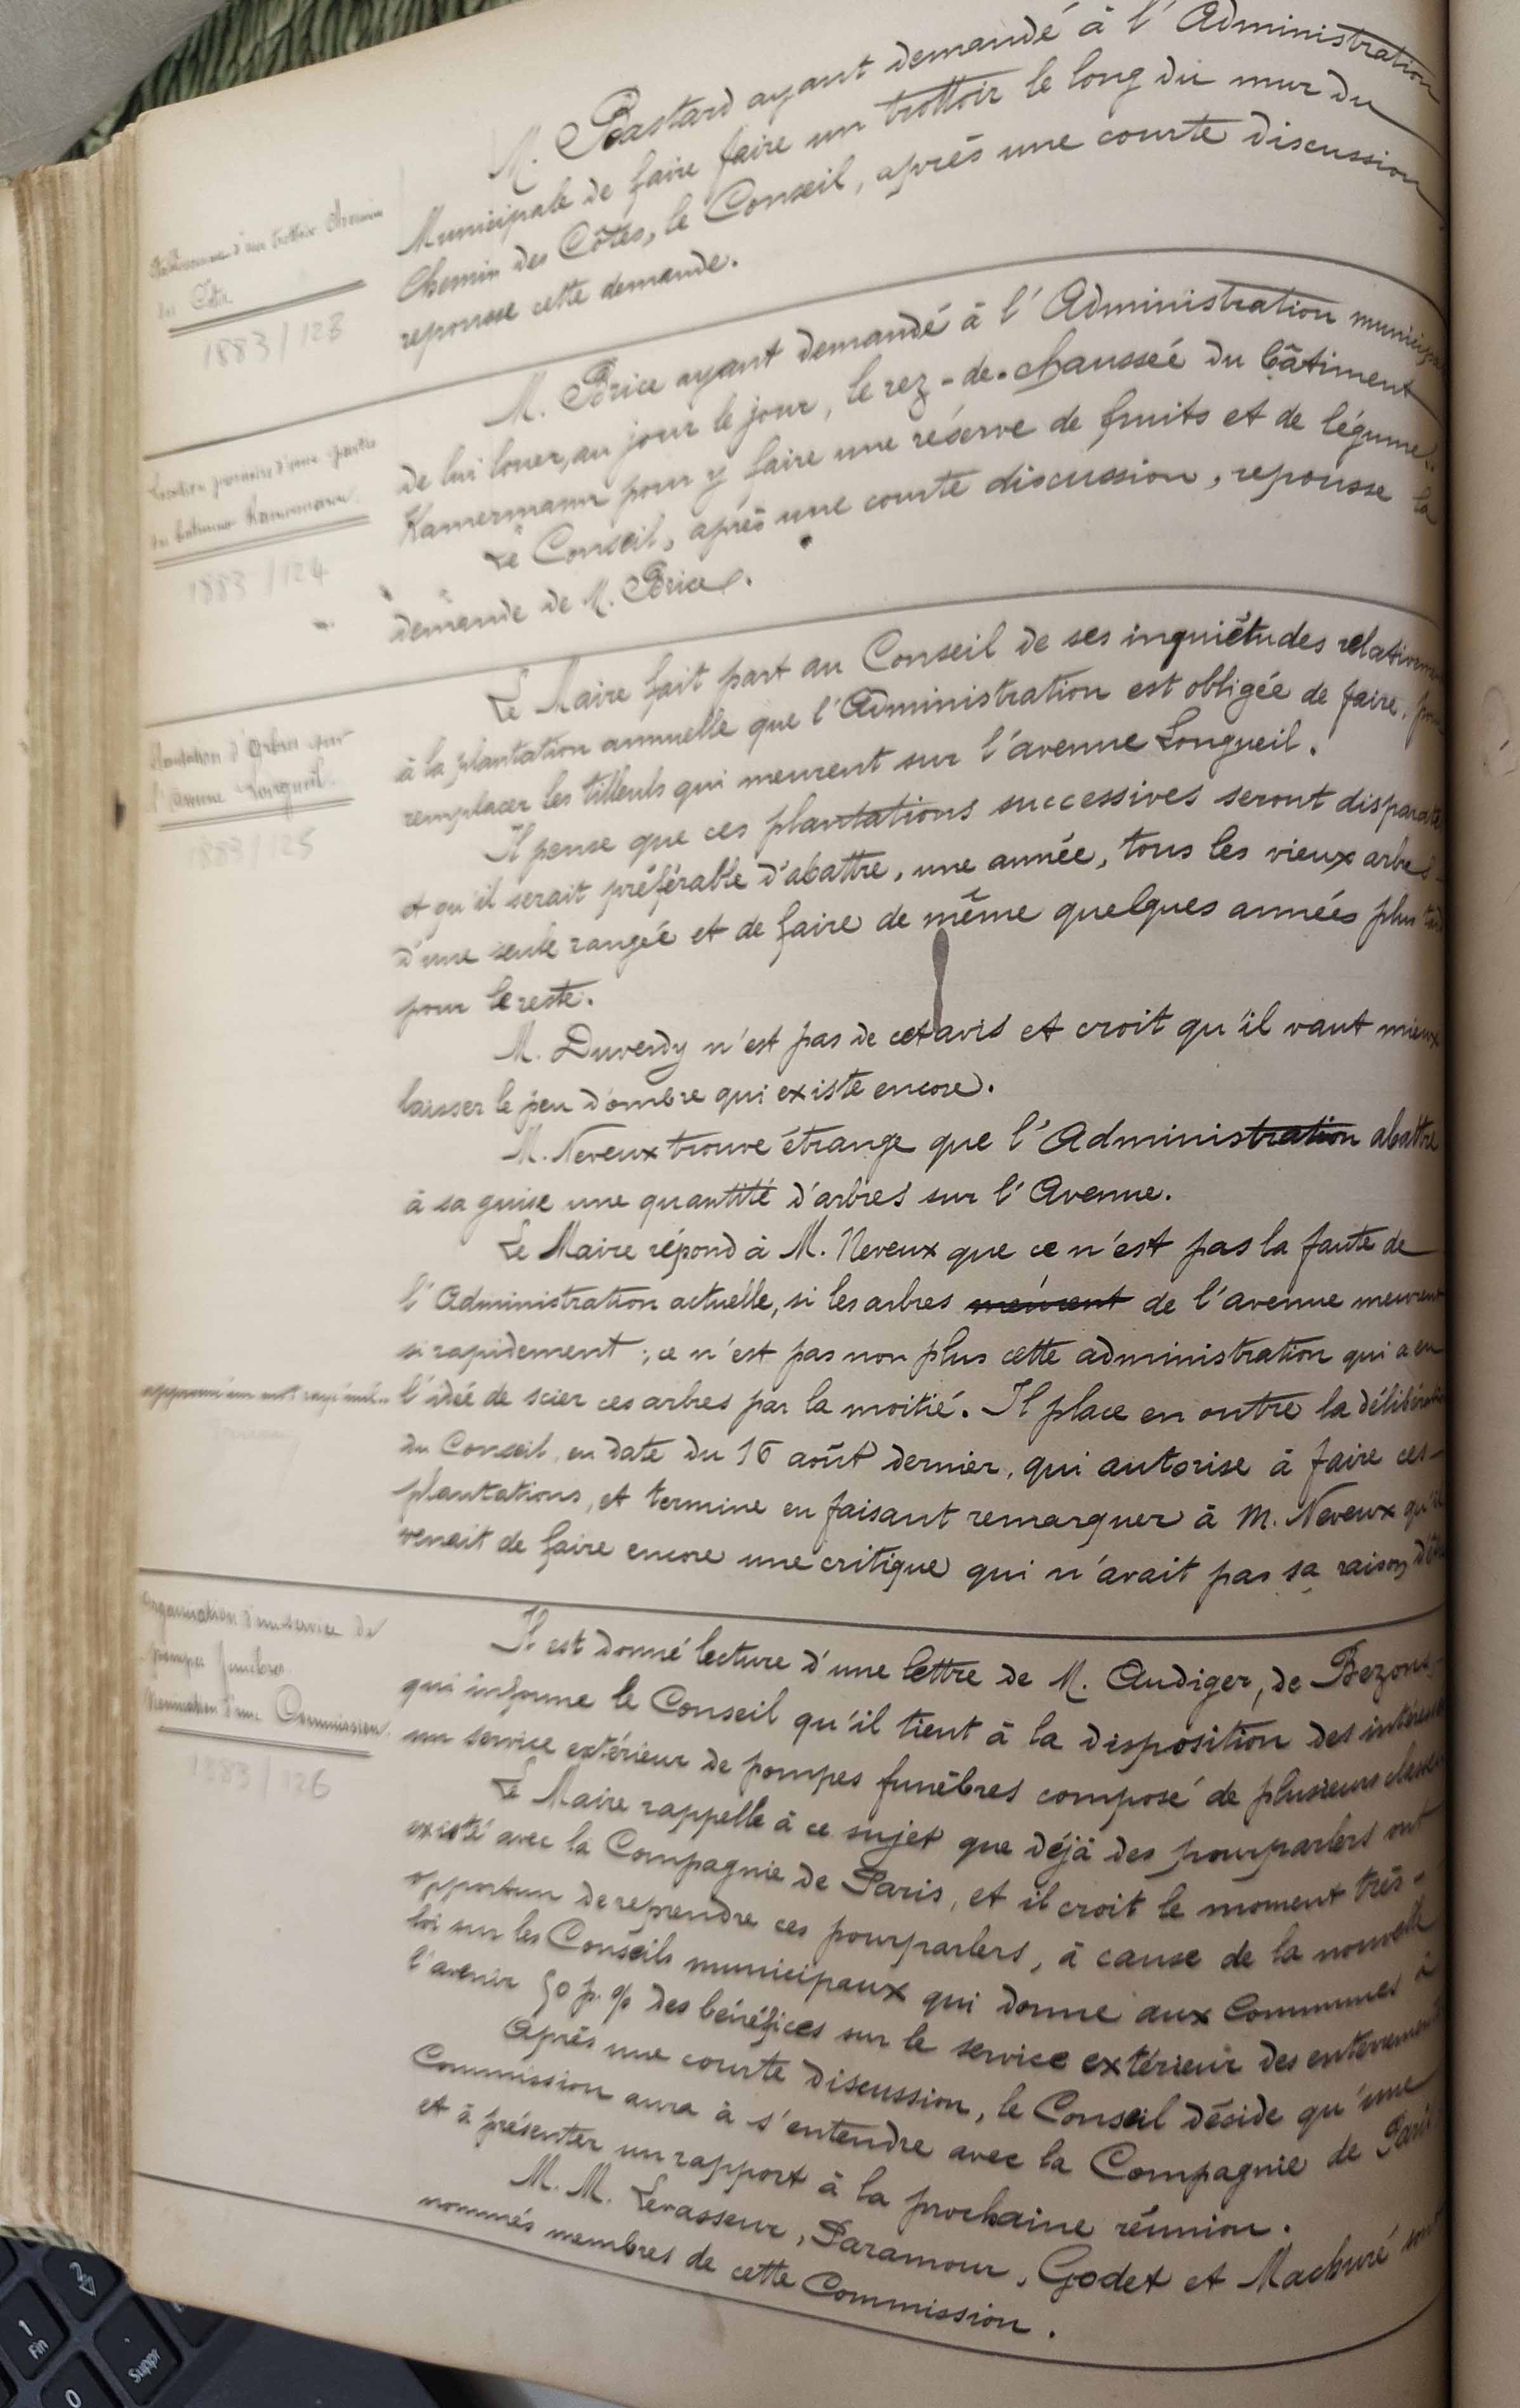 M. Bastard ayant demandé à l'Administration
Municipale de faire faire un trottoir le long du mur du
Chemin des Côtes, le Conseil, après une courte discussion
repousse cette demande.
d'un trottoir Chemin
des Côtes
1883/123
M. Brice ayant demandé à l'Administration municipale
de lui louer, au jour le jour, le rez-de-chausseé du bâtiment
Kamermann pour y faire une réserve de fruits et de légumes.
Le Conseil, après une courte discussion, repousse la
demande de M. Brice.
Location d'une partie
du batiment Kamermann.
1883/124
Le Maire fait part au Conseil de ses inquiétudes
à la plantation annuelle que l'Administration est obligée de faire, pour
remplacer les tilleuls qui meurent sur l'avenue Longueil.
Il pense que ces plantations successives seront disparates
et qu'il serait préférable d'abattre, une année, tous les vieux arbres
d'une seule rangeé et de faire de même quelques années plus tard
pour le reste.
Plantation d'arbres sur
l'avenue Longueil.
1883/125
M. Duverdy n'est pas de cet avis et croit qu'il vaut mieux
laisser le peu d'ombre qui existe encore.
M. Neveux trouve étrange que l'Administration abattre
à sa guise une quantité d'arbres sur l'Avenue.
Le Maire répond à M. Neveux que ce n'est pas la faute de
l'Administration actuelle, si les arbres meurent de l'avenue meurent
si rapidement ; ce n'est pas non plus cette administration qui a eu
l'idée de scier ces arbres par la moitié. Il place en outre la délibération
du Conseil, en date du 16 août dernier, qui autorise à faire ces
plantations, et termine en faisant remarquer à M. Neveux qu'il
venait de faire encore une critique qui n'avait pas sa raison d'être
un mot rayé nul
Il est donné lecture d'une lettre de M. Audiger, de Bezons,
qui informe le Conseil qu'il tient à la disposition des intéressés
un service extérieur de pompes funèbres composé de plusieurs classes
Le Maire rappelle à ce sujet que déjà des pourparlers ont
existé avec la Compagnie de Paris, et il croit le moment très-
opportun de reprendre ces pourparlers, à cause de la nouvelle
loi sur les Conseils municipaux qui donne aux Communes à
l'avenir 50 p. % des bénéfices sur le service extérieur des enterrements
Après une courte discussion, le Conseil déside qu'une
Commission aura à s'entendre avec la Compagnie de Paris
et à présenter un rapport à la prochaine réunion.
M. M. Levasseur, Paramour, Godet et Machuré sont
nommés membres de cette Commission.
Organisation d'un service de
pompes funèbres.
Nomination d'une Commission.
1883/126
2
1
Fin
0
.
Suppr